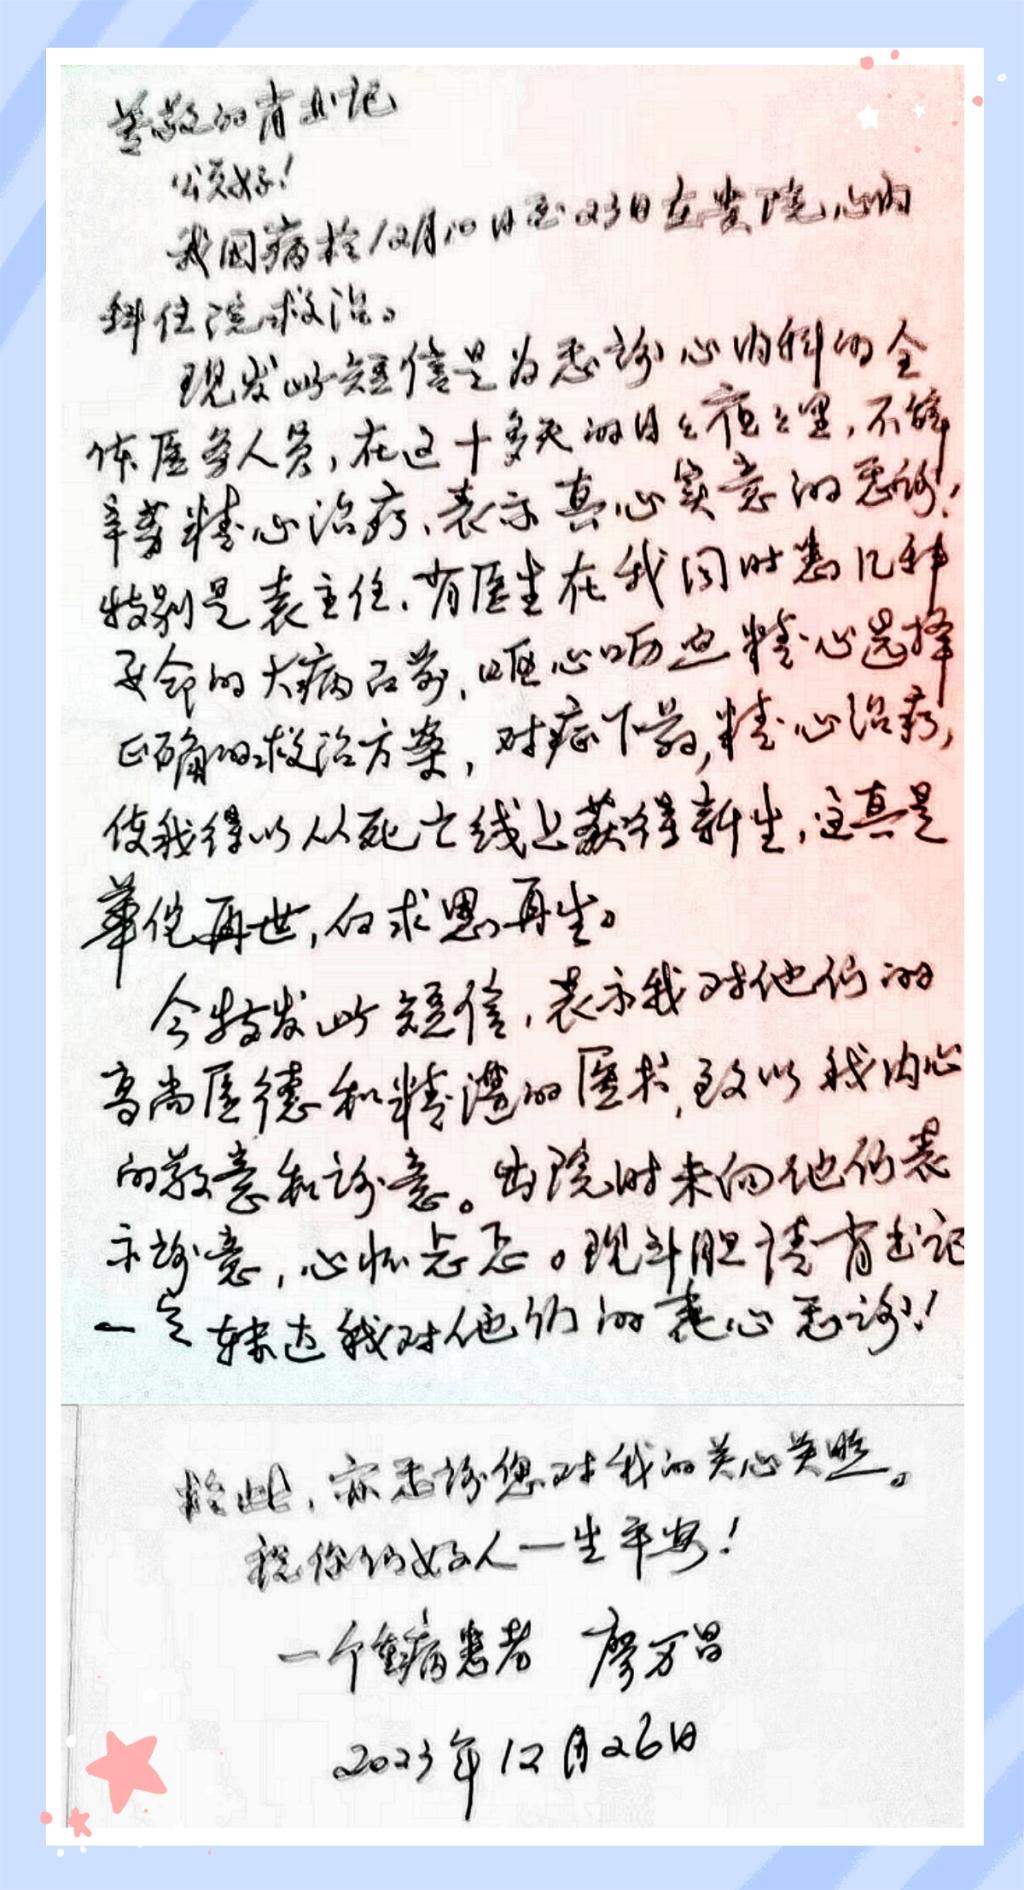 尊敬的肖书记
您好!
我因病于12月10日至23日在贵院心内
科住院救治。
现发此短信是为感谢心内科的全
体医务人员,在这十多天的日日夜夜里,不辞
辛劳精心治疗,表示真心实意的感谢!
特别是袁主任、肖医生在我同时患几种
要命的大病面前,呕心呖血精心选择
正确的救治方案,对症下药,精心治疗,
使我得以从死亡线上获得新生,这真是
华佗再世,白求恩再生。
今特发此短信,表示我对他们的
高尚医德和精湛的医术,致以我内心
的敬意和谢意。出院时未向他们表
示谢意,心怀忐忑。现斗胆请肖书记
一定转达我对他们的衷心感谢!
于此,亦感谢您对我的关心关照。
祝你们好人一生平安!
一个重病患者 廖万昌
2023年12月26日